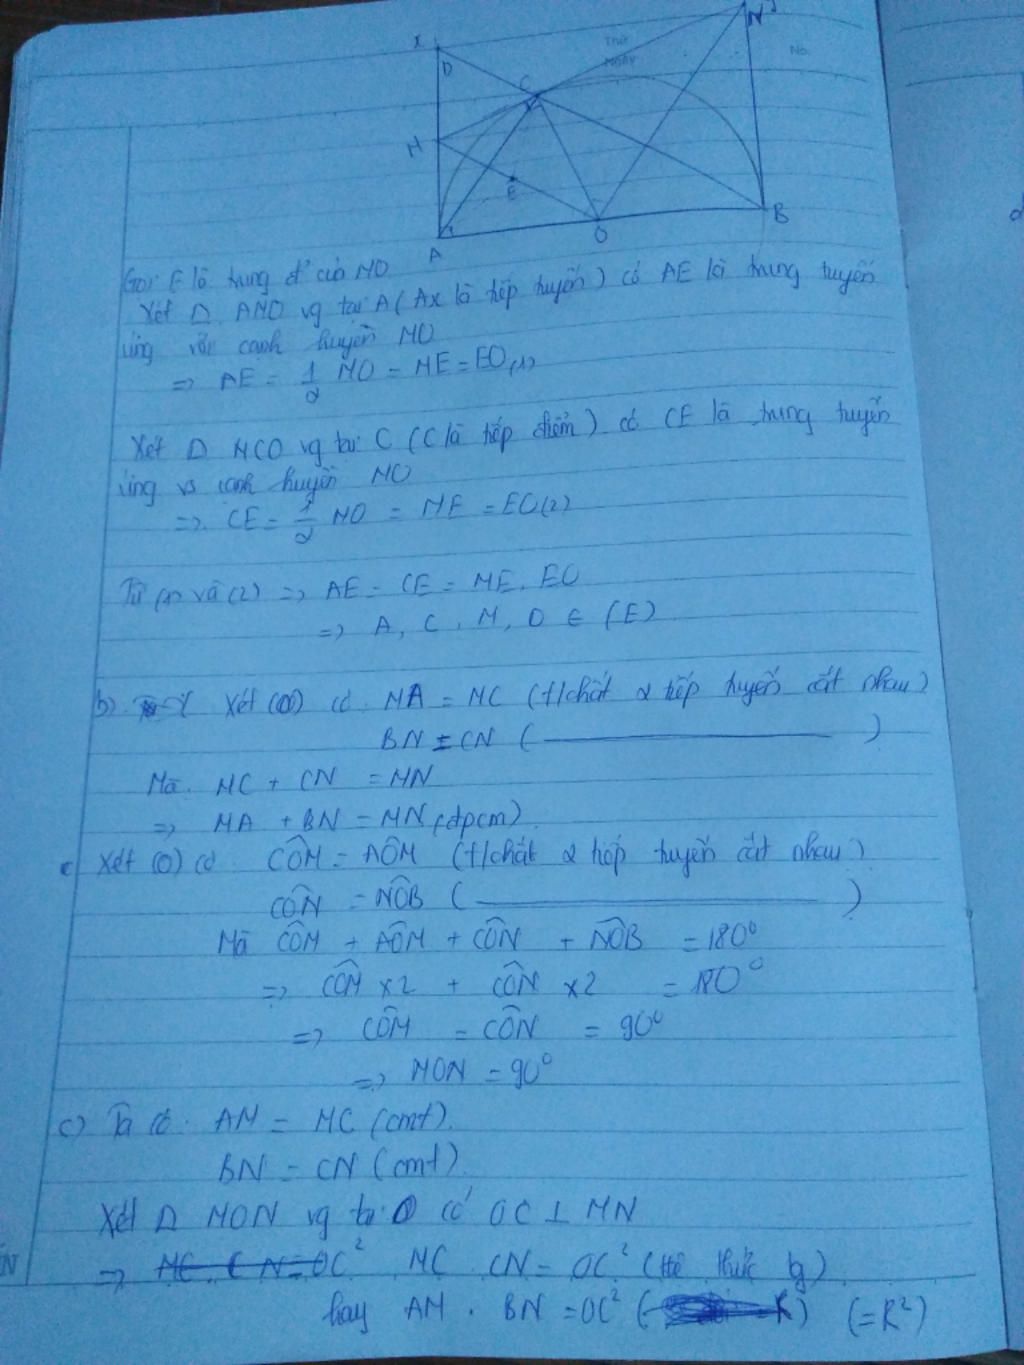 x
D
Thứ
Ngày
No.
N
y
C
M
E
A
O
B
Gọi E là trung đ' của MO
Xét Δ AMO vg tại A (Ax là tiếp tuyến) có AE là trung tuyến
ứng với cạnh huyền MO
=> AE = 1/2 MO = ME = EO (1)
Xét Δ MCO vg tại C (C là tiếp điểm) có CE là trung tuyến
ứng vs cạnh huyền MO
=> CE = 1/2 MO = ME = EO (2)
Từ (1) và (2) => AE = CE = ME = EO
=> A, C, M, O ∈ (E)
b) Xét (O) có MA = MC (t/chất 2 tiếp tuyến cắt nhau)
BN = CN ( ——— )
Mà MC + CN = MN
=> MA + BN = MN (đpcm)
c Xét (O) có CÔM = AÔM (t/chất 2 tiếp tuyến cắt nhau)
CÔN = NÔB ( ——— )
Mà CÔM + AÔM + CÔN + NÔB = 180°
=> CÔM x 2 + CÔN x 2 = 180°
=> CÔM = CÔN = 90°
=> MON = 90°
c) Ta có AM = MC (cmt)
BN = CN (cmt)
Xét Δ MON vg tại O có OC ⊥ MN
=> MC . CN = OC² MC . CN = OC² (Hệ thức lg)
hay AM . BN = OC² (= R²)